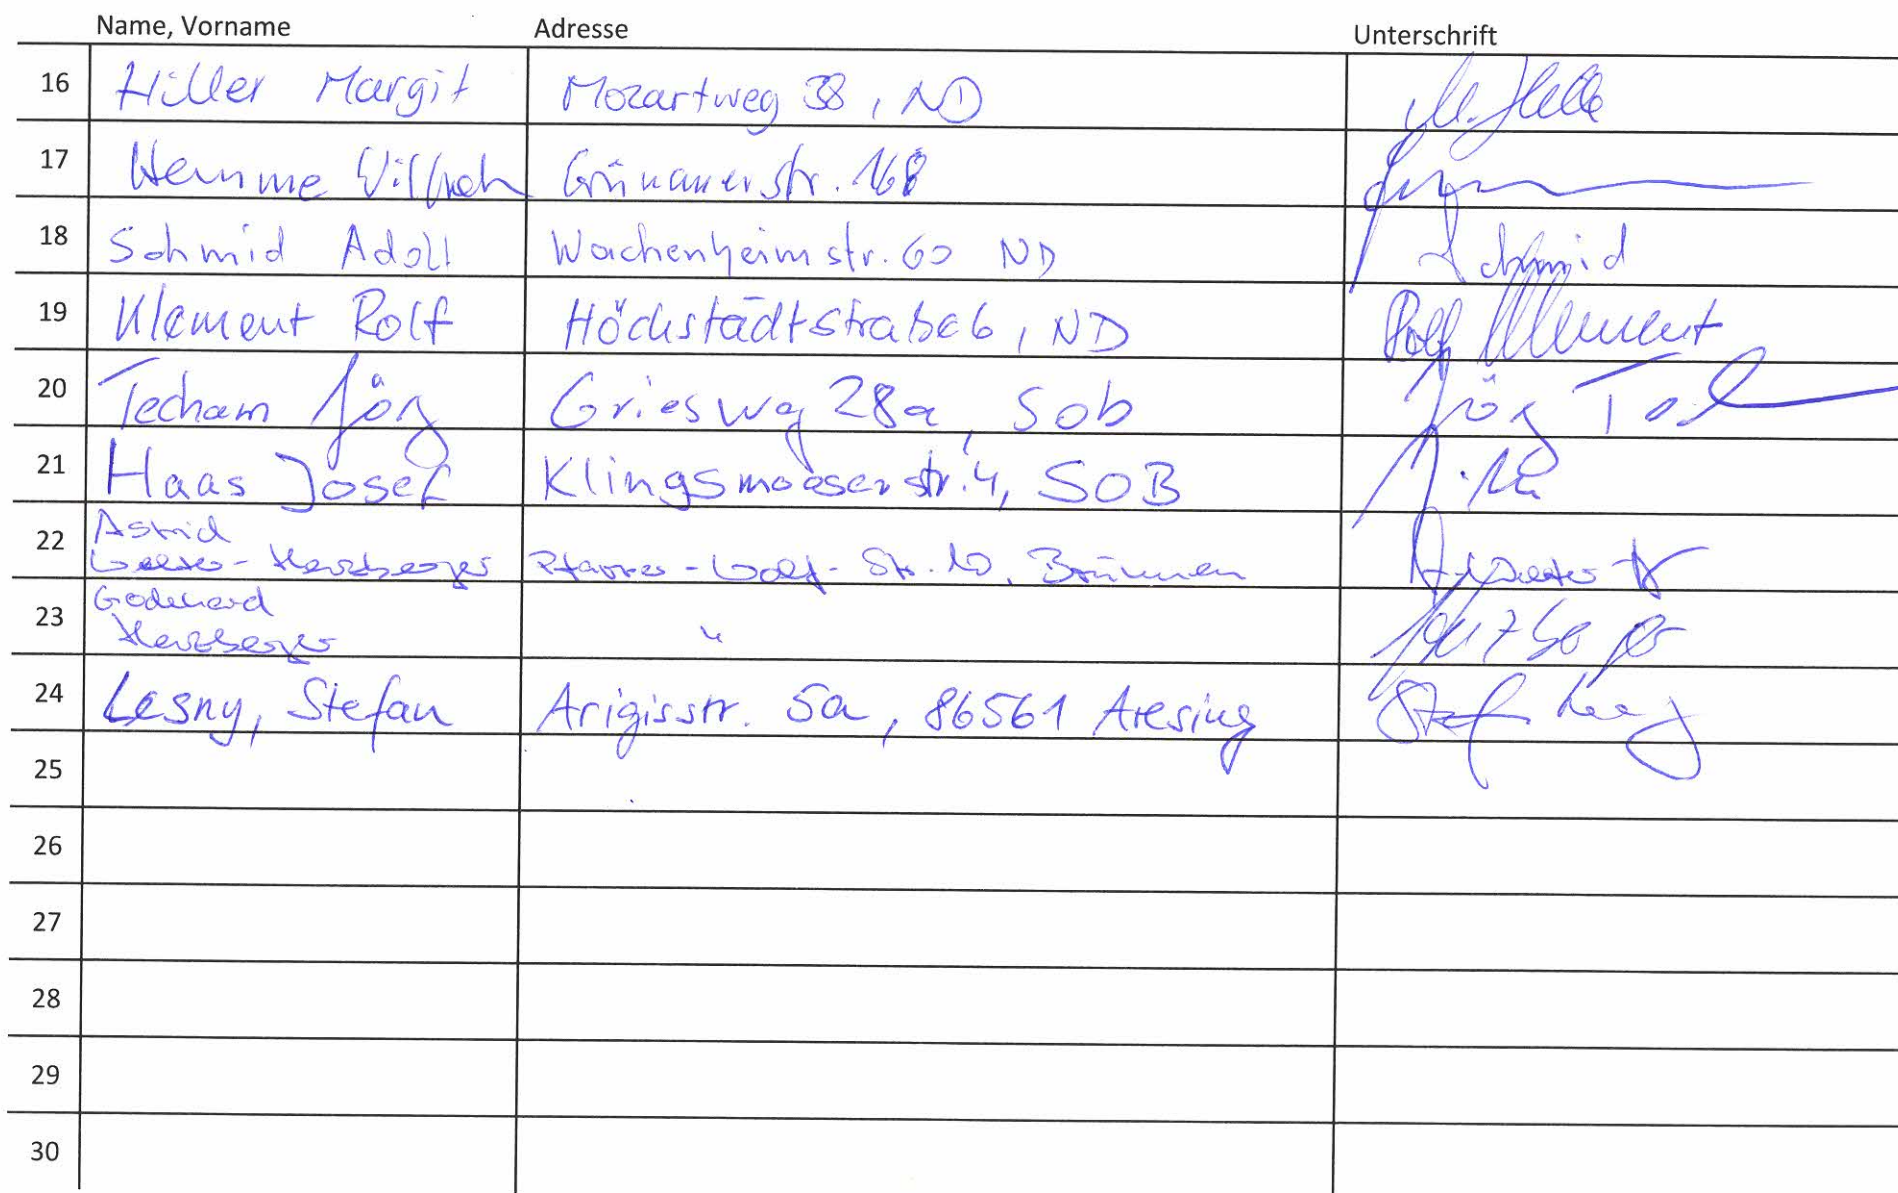 Name, Vorname Adresse Unterschrift
16 Hiller Margit Mozartweg 38, ND M. Hille
17 Hemme Grünauerstr. 168
18 Schmid Adolf Wachenheimstr. 60 ND Schmid
19 Klement Rolf Höchstädtstraße 6, ND Rolf Klement
20 Techam Jörg Griesweg 28a, Sob Jörg
21 Haas Josef Klingsmooserstr. 4, SOB
22 Astrid
-Herzberger Pfarrer-Wolf-Str. 10, Brunnen
23 Godehard
Herzberger "
24 Lesny, Stefan Arigisstr. 5a, 86561 Aresing
25
26
27
28
29
30